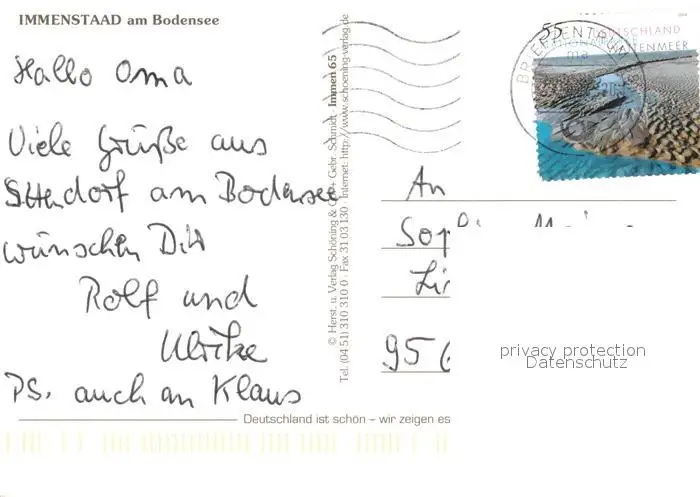 IMMENSTAAD am Bodensee
Hallo Oma
Viele Grüße aus
am Bodensee
wünschen Dir
Rolf und
Ulrike
PS. auch an Klaus
Deutschland ist schön – wir zeigen es
© Herst. u. Verlag Schöning & Gebr. Schmidt · Immen 65
Tel. (04 51) 310 310 0 · Fax 31 03 130 · Internet: http://www.schoening-verlag.de
55
DEUTSCHLAND
BRIEFZENTRUM
An
95
privacy protection
Datenschutz